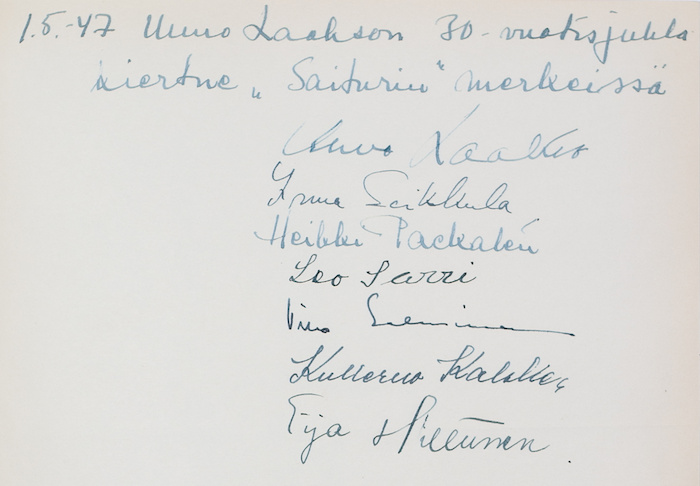 1.5.-47 Uuno Laakson 30-vuotisjuhla
kiertue „Saiturin" merkeissä
Uuno Laakso
Irma Seikkula
Heikki Packalén
Leo Surri
Eeminen
Kullervo Kalske
Eija Hiltunen